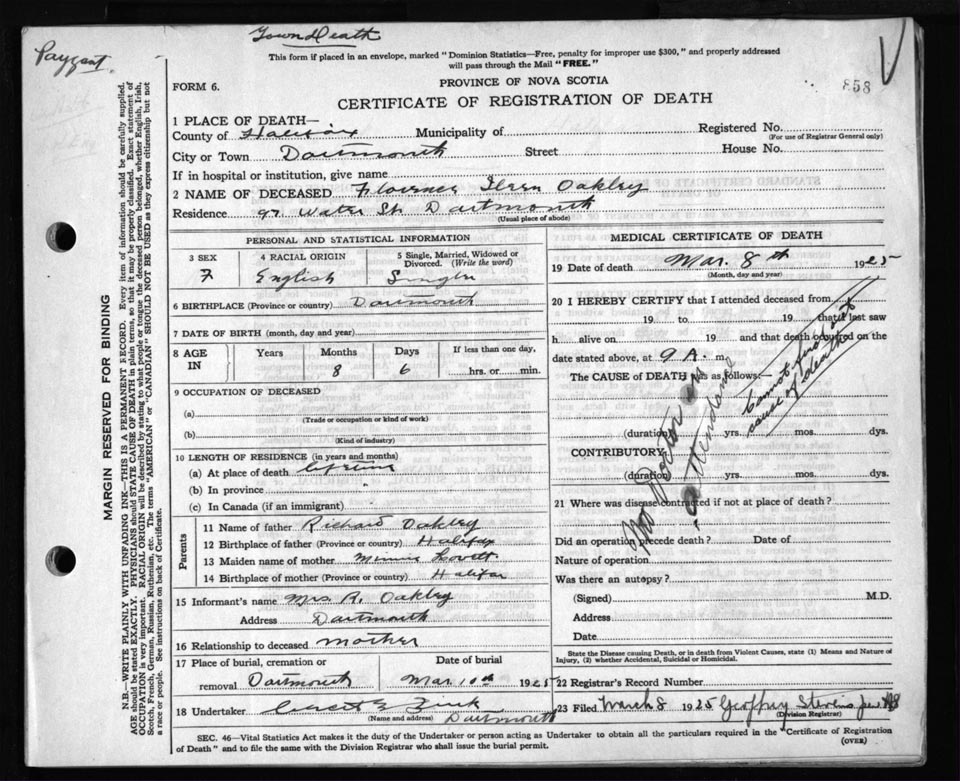 Town Death
Payzant
This form if placed in an envelope, marked "Dominion Statistics—Free, penalty for improper use $300," and properly addressed
will pass through the Mail "FREE."
858
FORM 6.
PROVINCE OF NOVA SCOTIA
CERTIFICATE OF REGISTRATION OF DEATH
1 PLACE OF DEATH—
County of Halifax Municipality of Registered No.
(For use of Registrar General only)
City or Town Dartmouth Street House No.
If in hospital or institution, give name
2 NAME OF DECEASED Oakley
Residence 97 Water St. Dartmouth
(Usual place of abode)
PERSONAL AND STATISTICAL INFORMATION
3 SEX
F
4 RACIAL ORIGIN
English
5 Single, Married, Widowed or
Divorced. (Write the word)
Single
6 BIRTHPLACE (Province or country) Dartmouth
7 DATE OF BIRTH (month, day and year)
8 AGE
IN
Years
Months
8
Days
6
If less than one day,
hrs. or min.
9 OCCUPATION OF DECEASED
(a)
(Trade or occupation or kind of work)
(b)
(Kind of industry)
10 LENGTH OF RESIDENCE (in years and months)
(a) At place of death lifetime
(b) In province
(c) In Canada (if an immigrant)
Parents
11 Name of father Richard Oakley
12 Birthplace of father (Province or country) Halifax
13 Maiden name of mother Minnie Lovett
14 Birthplace of mother (Province or country) Halifax
15 Informant's name Mrs R. Oakley
Address Dartmouth
16 Relationship to deceased mother
17 Place of burial, cremation or
removal Dartmouth
Date of burial
Mar 10th 1925
18 Undertaker Zink
(Name and address) Dartmouth
MEDICAL CERTIFICATE OF DEATH
19 Date of death Mar. 8th 1925
(Month, day and year)
20 I HEREBY CERTIFY that I attended deceased from
19 to 19 that I last saw
h alive on 19 and that death occurred on the
date stated above, at 9 A. m.
The CAUSE of DEATH was as follows:
No Doctor in
attendance
Cannot find out
cause of death
(duration) yrs. mos. dys.
CONTRIBUTORY
(duration) yrs. mos. dys.
21 Where was disease contracted if not at place of death?
Did an operation precede death? Date of
Nature of operation
Was there an autopsy?
(Signed) M.D.
Address
Date
State the Disease causing Death, or in death from Violent Causes, state (1) Means and Nature of
Injury, (2) whether Accidental, Suicidal or Homicidal.
22 Registrar's Record Number
23 Filed March 8 1925 Geoffrey Stevens
(Division Registrar)
SEC. 46—Vital Statistics Act makes it the duty of the Undertaker or person acting as Undertaker to obtain all the particulars required in the "Certificate of Registration
of Death" and to file the same with the Division Registrar who shall issue the burial permit.
(OVER)
MARGIN RESERVED FOR BINDING
N.B.—WRITE PLAINLY WITH UNFADING INK—THIS IS A PERMANENT RECORD. Every item of information should be carefully supplied.
AGE should be stated EXACTLY. PHYSICIANS should STATE CAUSE OF DEATH in plain terms, so that it may be properly classified. Exact statement of
OCCUPATION is very important. RACIAL ORIGIN will be described by stating to what people or tongue the deceased person belonged, whether English, Irish,
Scotch, French, German, Russian, Ruthenian, etc. The terms "AMERICAN" or "CANADIAN" SHOULD NOT BE USED as they express citizenship but not
a race or people. See instructions on back of Certificate.